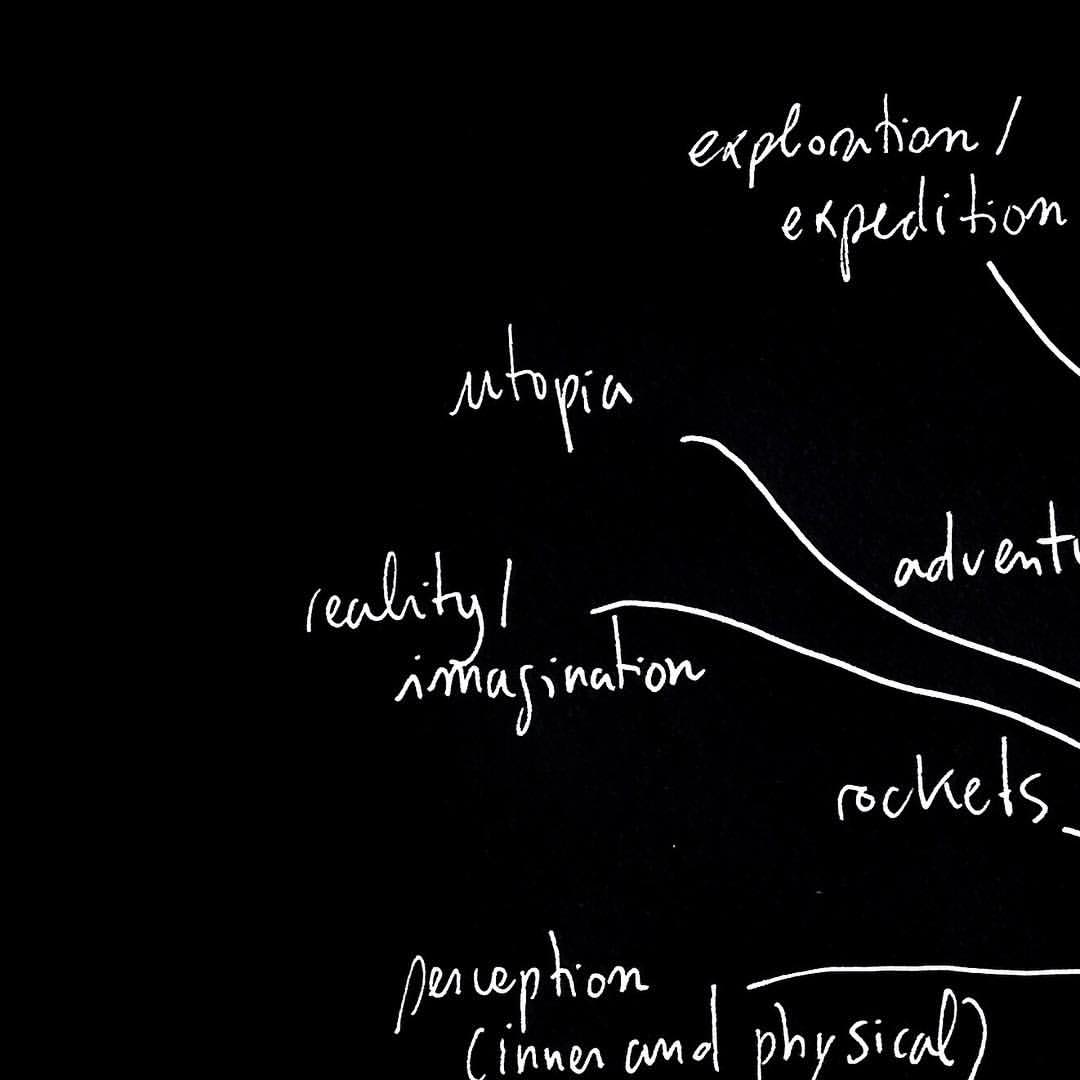 exploration /
expedition
utopia
adventu
reality /
imagination
rockets
perception
(inner and physical)